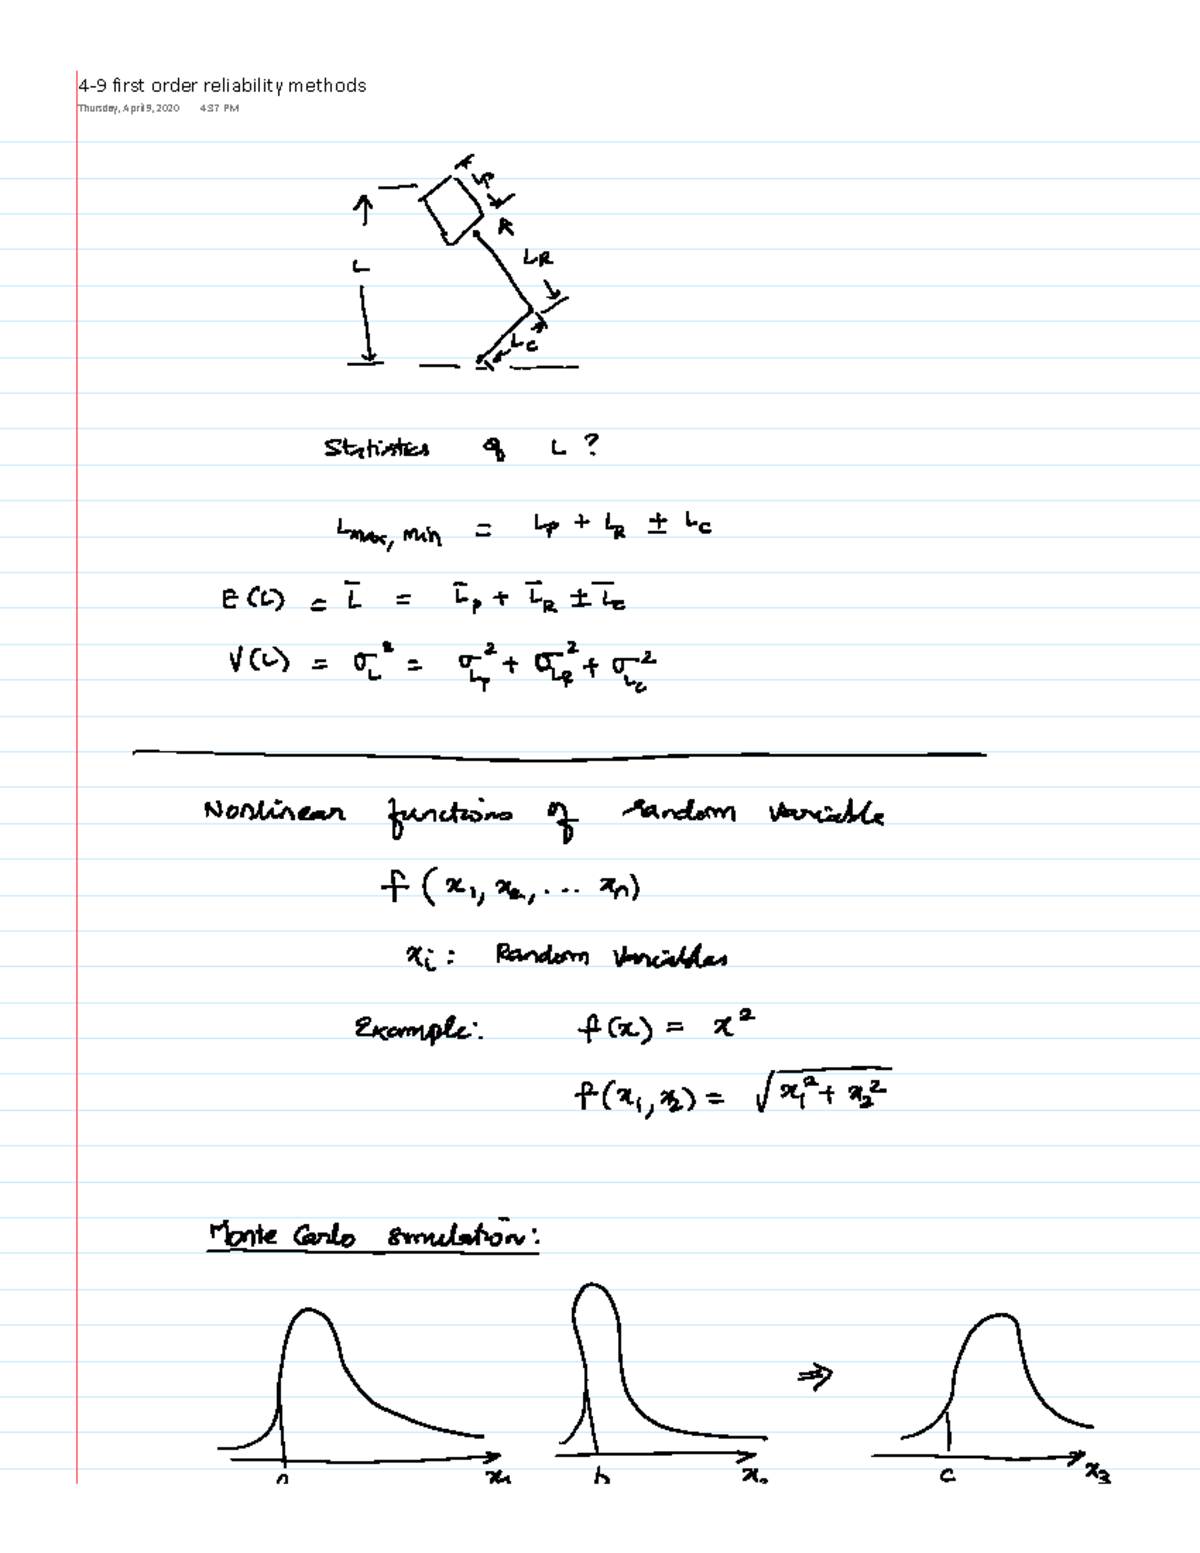 4-9 first order reliability methods
Thursday, April 9, 2020 4:37 PM
LP
R
L
LR
LC
Statistics of L ?
Lmax, min = LP + LR ± LC
E(L) = L̄ = L̄P + L̄R ± L̄C
V(L) = σL² = σLP² + σLR² + σLC²
Nonlinear functions of random variable
f(x₁, x₂, ... xn)
xi : Random Variables
Example: f(x) = x²
f(x₁, x₂) = √x₁² + x₂²
Monte Carlo simulation:
a x₁ b x₂ ⇒ c x₃